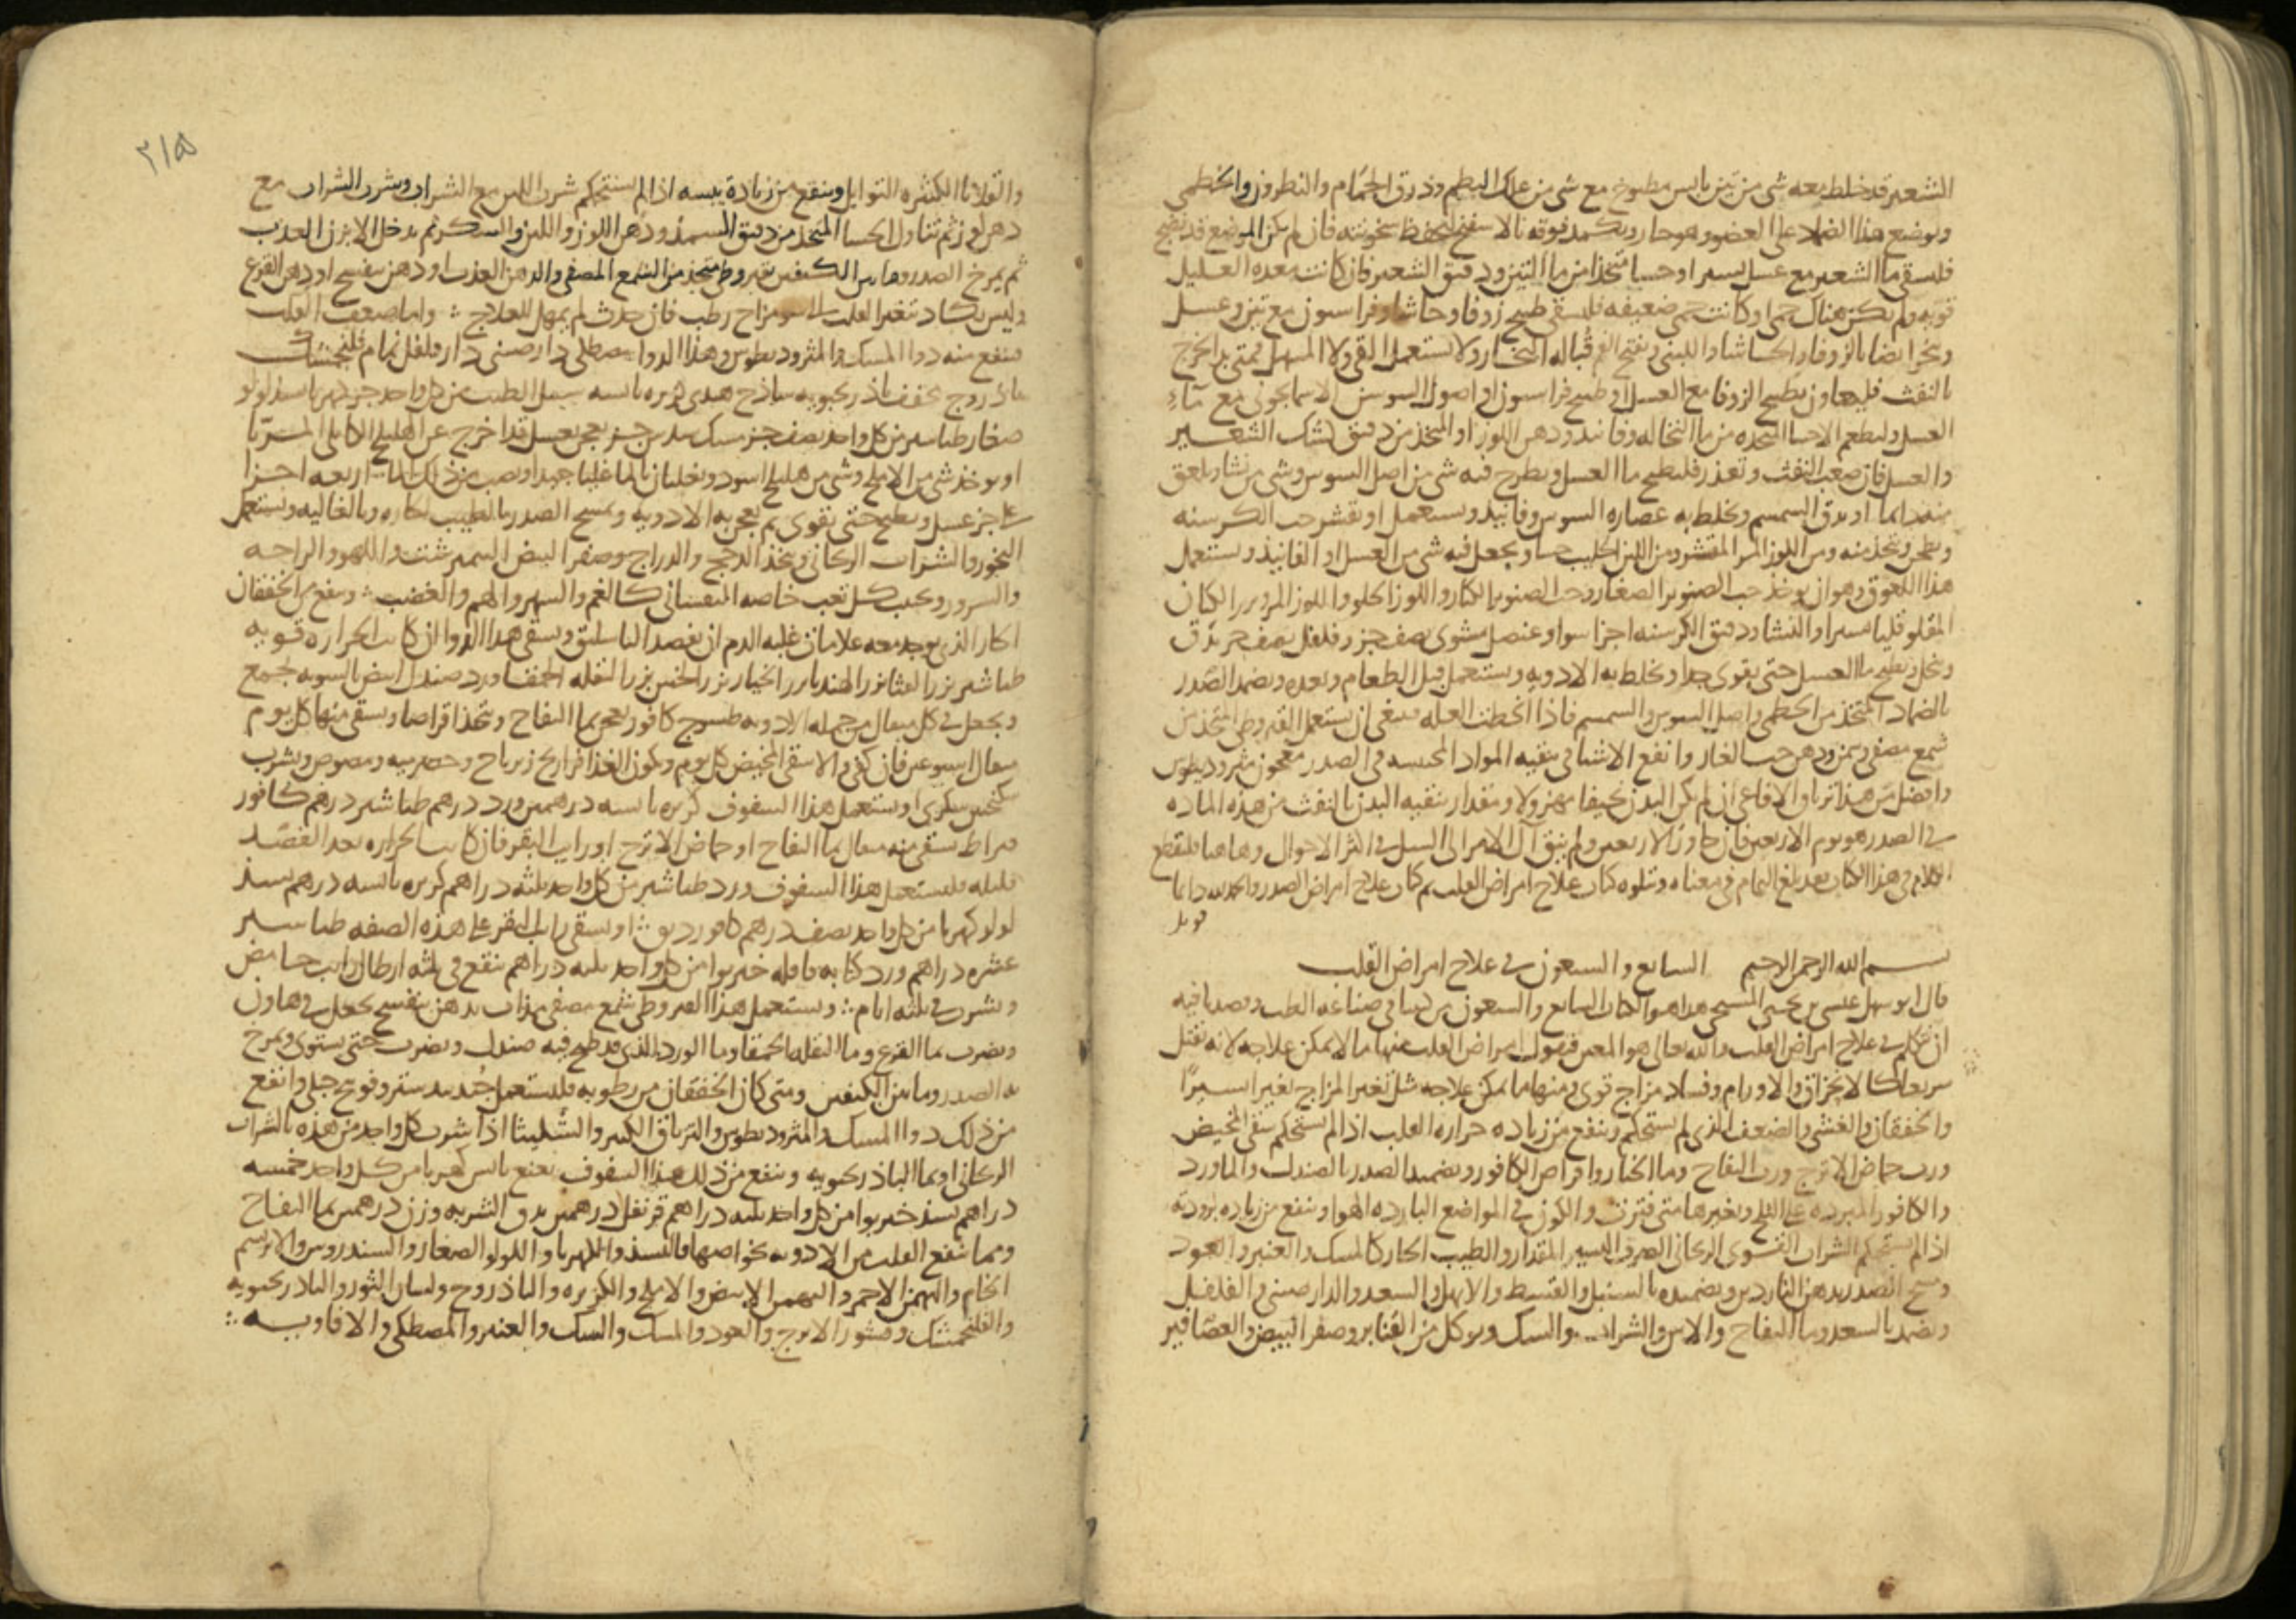 الشعير قد خلط معه شي من تين يابس مطبوخ مع شي من علك البطم وذرق الحمام والنطرون والخطمي
ويوضع هذا الضماد على العضو وهو حار ويكمد فوقه بالاسفنج لتحفظ سخونته فان لم يكن الموضع قد نضج
فليسقى ما الشعير مع عسل يسير او حسا متخذا من ما التين ودقيق الشعير فان كانت معده العليل
قويه ولم يكن هناك حمى او كانت حمى ضعيفه فليسقى طبيخ زوفا وحاشا وفراسيون مع تين وعسل
وبخر ايضا بالزوفا والحاشا واللبنى ويفتح الفم قباله البخار ولا تستعمل القي ولا المسهل فمتى بدا يخرج
بالنفث فليعاون بطبيخ الزوفا مع العسل او طبيخ فراسيون او اصول السوسن الاسمانجوني مع ماء
العسل وليطعم الاحسا المتخذه من ما النخاله وفانيد ودهن اللوز او المتخذ من دقيق كشك الشعير
والعسل فان صعب النفث وتعذر فليطبخ ما العسل ويطرح فيه شي من اصل السوس وشي من نشا ويلعق
منه دايما او يدق السمسم ويخلط به عصاره السوس وفانيد ويستعمل او تقشر حب الكرسنه
ويطحن ويتخذ منه ومن اللوز المر المقشر ومن اللبن الحليب حسا ويجعل فيه شي من العسل او الفانيد ويستعمل
هذا اللعوق وهو ان يوخذ حب الصنوبر الصغار وحب الصنوبر الكبار واللوز الحلو واللوز المر وبزر الكتان
المقلو قليا يسيرا والنشا ودقيق الكرسنه اجزا سوا وعنصل مشوى نصف جز وفلفل نصف جز يدق
وينخل ويطبخ ما العسل حتى يقوى جدا ويخلط به الادويه ويستعمل قبل الطعام وبعده ويضمد الصدر
بالضماد المتخذ من الخطمى واصل السوس والسمسم فاذا انحطت العله فينبغي ان يستعمل القيروطي المتخذ من
شمع مصفى وسمن ودهن حب الغار وانفع الاشيا في تنقيه المواد المحتبسه في الصدر معجون مثروديطوس
وافضل من هذا ترياق الافاعي ان لم يكن البدن نحيفا مهزولا ومقدار تنقيه البدن بالنفث من هذه الماده
في الصدر هو يوم الاربعين فان جاوز الاربعين ولم ينق آل الامر الى السل في اكثر الاحوال وهاهنا فلنقطع
الكلام في هذا الكتاب بعد بلغ التمام في معناه ويتلوه كتاب علاج امراض القلب تم كتاب علاج امراض الصدر والحمد لله دايما
قوبل
بسم الله الرحمن الرحيم السابع والسبعون في علاج امراض القلب
قال ابو سهل عيسى بن يحيى المسيحي هذا هو الكتاب السابع والسبعون من كتبنا في صناعه الطب وقصدنا فيه
ان نتكلم في علاج امراض القلب والله تعالى هو المعين فنقول امراض القلب منها ما لا يمكن علاجه لانه يقتل
سريعا كالانخراق والاورام وفساد مزاج قوى ومنها ما يمكن علاجه مثل تغير المزاج تغيرا يسيرًا
والخفقان والغشي والضعف الذي لم يستحكم وينفع من زياده حراره القلب اذا لم تستحكم سقى المخيض
ورب حماض الاترج ورب التفاح وما الخيار واقراص الكافور وتضميد الصدر بالصندل والماورد
والكافور المبرده على الثلج وتغييرها متى فترت والكون في المواضع البارده الهوا وينفع من زياده برودته
اذا لم تستحكم الشراب القوى الريحاني الصرف اليسير المقدار والطيب الحار كالمسك والعنبر والعود
ومسح الصدر بدهن الناردين وتضميده بالسنبل والقسط والابهل والسعد والدارصيني والفلفل
ويضمد بالسعد وما التفاح والاس والشراب والسك ويوكل من القنابر وصفر البيض والعصافير
٣١٥
والقلايا الكثيره التوابل وينفع من زيادة يبسه اذا لم تستحكم شرب اللبن مع الشراب وشرب الشراب مع
دهن لوز ثم تناول الحسا المتخذ من دقيق السميد ودهن اللوز واللبن والسكر ثم يدخل الابزن العذب
ثم يمرخ الصدر وما بين الكتفين بقيروطي متخذ من الشمع المصفى والدهن العذب او دهن بنفسج او دهن القرع
وليس يكاد يتغير القلب الى سو مزاج رطب فان حدث لم يمهل للعلاج : واما ضعف القلب
فينفع منه دوا المسك والمثروديطوس وهذا الدوا مصطكى دارصيني دارفلفل نمام فلنجمشك
باذروج مجفف باذرنجبويه ساذج هندى كزبره يابسه سنبل الطيب من كل واحد جز كهربا بسذ لولو
صغار طباشير من كل واحد نصف جز مسك سدس جز يعجن بعسل قد اخرج عن الهليلج الكابلي المربا
او يوخذ شي من الاملج وشي من هليلج اسود ويغليان بالما غليا جيدا ويصب من ذلك الما اربعه اجزا
على جز عسل ويطبخ حتى يقوى ثم يعجن به الادويه ويمسح الصدر بالطيب الحاره وبالغاليه ويستعمل
البخور والشراب الريحاني ويتخذ الدجج والدراج وصفر البيض النيمرشت واللهو والراحه
والسرور ويجتنب كل تعب خاصه النفساني كالغم والسهر والهم والغضب : وينفع من الخفقان
الحار الذي يوجد معه علامات غلبه الدم ان يفصد الباسليق ويسقى هذا الدوا ان كانت الحراره قويه
طباشير بزر القثا بزر الهندبا بزر الخيار بزر الخس بزر البقله الحمقا ورد صندل ابيض بالسويه يجمع
ويجعل في كل مثقال من جمله الادويه طسوج كافور يعجن بما التفاح ويتخذ اقراصا ويسقى منها كل يوم
مثقال اسبوعين فان كفى والا سقى المخيض كل يوم ويكون الغذا فراريج زيرباج وحصرميه ومصوص ويشرب
سكنجبين سكرى او يستعمل هذا السفوف كزبره يابسه درهمين ورد درهم طباشير درهم كافور
قيراط يسقى منه مثقال بما التفاح او حماض الاترج او رايب البقر فان كانت الحراره بعد الفصد
قليله فليستعمل هذا السفوف ورد طباشير من كل واحد ثلثه دراهم كزبره يابسه درهم بسذ
لولو كهربا من كل واحد نصف درهم كافور دانق : او يسقى رايب البقر على هذه الصفه طباشير
عشره دراهم ورد كبابه قاقله خيربوا من كل واحد ثلثه دراهم ينقع في ثلثه ارطال رايب حامض
ويشرب في ثلثه ايام : ويستعمل هذا القيروطي شمع مصفى يذاب بدهن بنفسج يجعل في هاون
ويضرب بما القرع وما البقله الحمقا وما الورد الذي قد طبخ فيه صندل ويضرب حتى يستوى ويمرخ
به الصدر وما بين الكتفين ومتى كان الخفقان من رطوبه فليستعمل جندبيدستر وفوتنج جبلي وانفع
من ذلك دوا المسك والمثروديطوس والترياق الكبير والشليثا اذا شرب كل واحد من هذه بالشراب
الريحاني او بما الباذرنجبويه وينفع من ذلك هذا السفوف نعنع يابس كهربا من كل واحد خمسه
دراهم بسذ خيربوا من كل واحد ثلثه دراهم قرنفل درهمين يدق الشربه وزن درهمين بما التفاح
ومما ينفع القلب من الادويه بخواصها فالبسذ والكهربا واللولو الصغار والسندروس والابريسم
الخام والبهمن الاحمر والبهمن الابيض والاملج والكزبره والباذروج ولسان الثور والباذرنجبويه
والفلنجمشك وقشور الاترج والعود والمسك والسك والعنبر والمصطكى والافاويه ∴